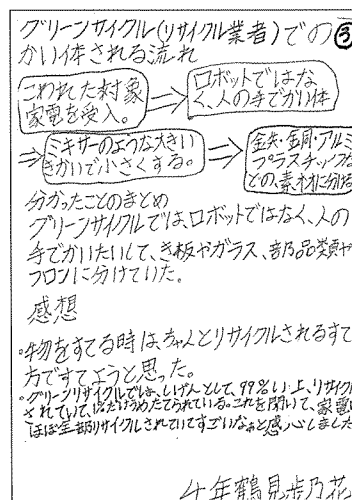 グリーンサイクル(リサイクル業者)での③
かい体される流れ
こわれた対象
家電を受入。
⇒
ロボットではな
く、人の手でかい体
⇒
ミキサーのような大きい
きかいで小さくする。
⇒
金失・金同・アルミ
プラスチックな
どの、素材に分ける
分かったことのまとめ
グリーンサイクルでは、ロボットではなく、人の
手でかいたいして、き板やガラス、部品類や
フロンに分けていた。
感想
・物をすてる時は、ちゃんとリサイクルされるすて
方ですてようと思った。
・グリーンリサイクルでは、しげんとして、99%い上、リサイクル
されていて、1%だけうめたてられている。これを聞いて、家電は
ほぼ全部リサイクルされていてすごいなぁと感心しました
4年鶴見歩乃花